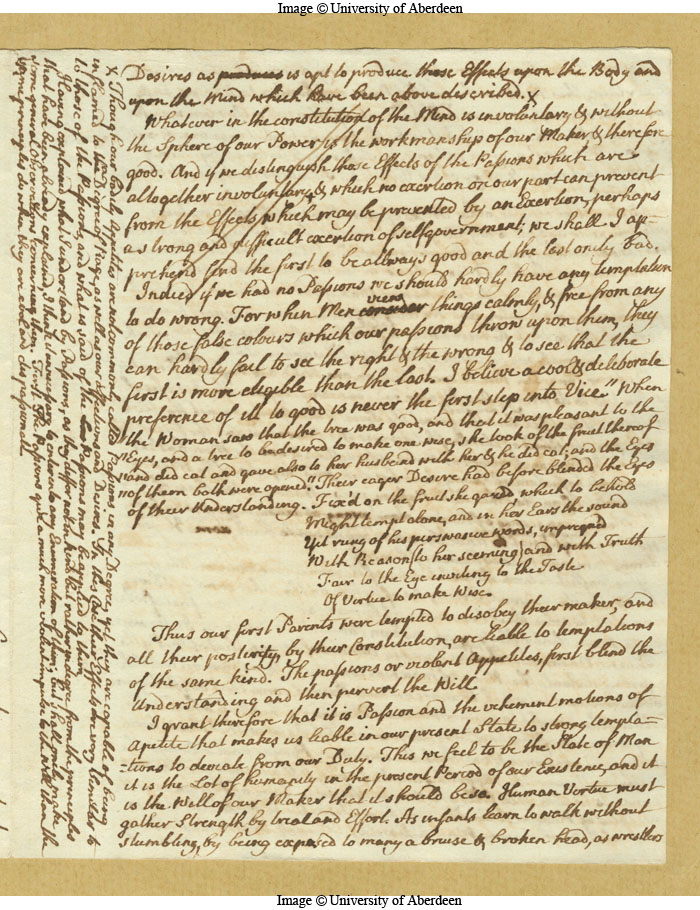 Image © University of Aberdeen
Desires as produces is apt to produce those Effects upon the Body and
upon the Mind which have been above described. x
Whatever in the constitution of the Mind is involuntary & without
the Sphere of our Power is the workmanship of our Maker & therefore
good. And if we distinguish those Effects of the Passions which are
altogether involuntary, & which no exertion on our part can prevent
from the Effects which may be prevented by an Exertion, perhaps
a strong and difficult exertion of selfgovernment; we shall I ap-
prehend find the first to be allways good and the last only bad.
Indeed if we had no Passions we should hardly have any temptation
to do wrong. For when Men consider view things calmly, & free from any
of those false colours which our passions throw upon them, they
can hardly fail to see the right & the wrong & to see that the
first is more eligible than the last. I believe a cool & deliberate
preference of ill to good is never the first step into Vice. "When
the Woman saw that the tree was good, and that it was pleasant to the
"Eyes, and a tree to be desired to make one wise, she took of the fruit thereof
"and did eat and gave also to her husband with her & he did eat; and the Eyes
"of them both were opened." Their eager Desire had before blinded the Eyes
of their Understanding.
Fix'd on the fruit she gazed which to behold
Might tempt alone, and in her Ears the sound
Yet rung of his perswasive words, impregnd
With Reason (to her seeming) and with Truth
Fair to the Eye inviting to the Taste
Of Virtue to make Wise.
Thus our first Parents were tempted to disobey their maker, and
all their posterity, by their Constitution, are liable to temptations
of the same kind. The passions or violent Appetites, first blind the
Understanding and then pervert the Will.
I grant therefore that it is Passion and the vehement motions of
Apetite that makes us liable in our present State to strong tempta=
=tions to deviate from our Duty. This we feel to be the State of Man
it is the Lot of humanity in the present Period of our Existence, and it
is the Will of our Maker that it should be so. Human Virtue must
gather Strength by trial and Effort. As infants learn to walk without
stumbling, by being exposed to many a bruise & broken head, as wrestlers
x Though our bodily Appetites are not commonly called Passions in any Degree, yet they are capable of being
inflamed to the Degree of Rage, as well as our affections and Desires. In this Case their Effects are very similar to
to those of the Passions, and what is said of the Passions may be applied to them.
Having explained what I understand by Passions, as they differ not in kind but rather in degree from the principles
that have been already explained, I think it unnecessary to enter into any Enumeration of them; but I shall onely make
some general observations concerning them. First The Passions give a much more violent impulse to the Will than the
same principles do when they are cool and dispassionate.
Image © University of Aberdeen